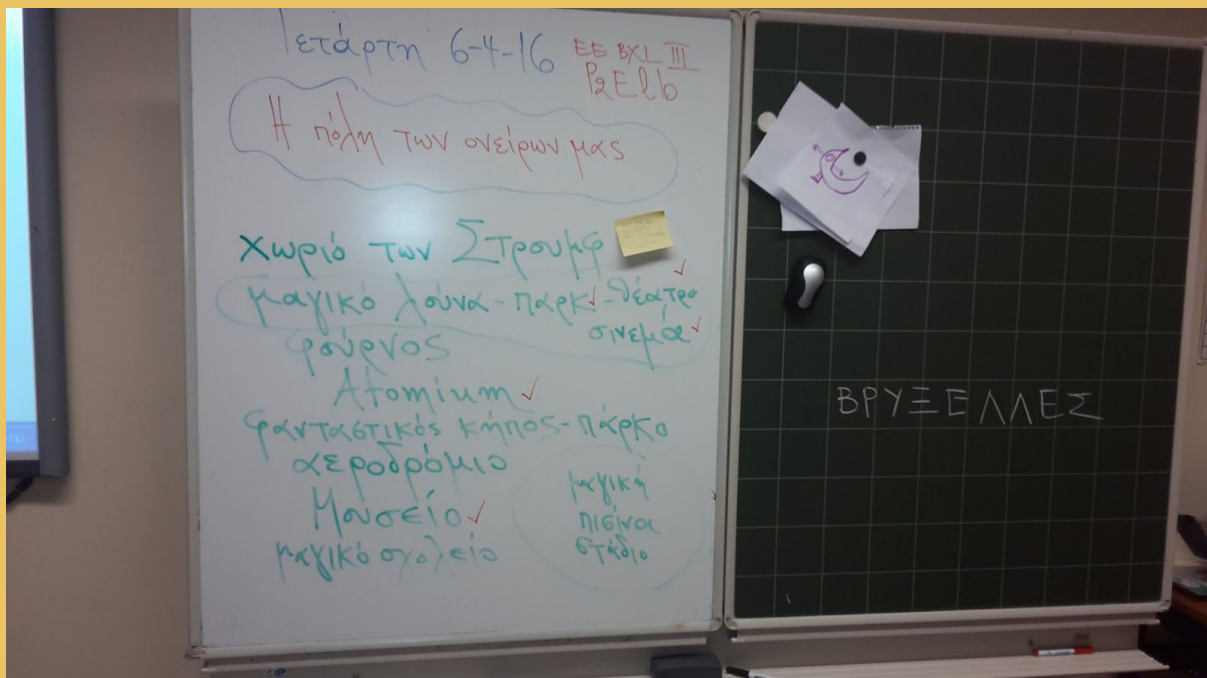 Τετάρτη 6-4-16
EE BXL III
P2ELb
Η πόλη των ονείρων μας
Χωριό των Στρουμφ
μαγικό λούνα-παρκ ✓ - θέατρο ✓
σινεμά ✓
φούρνος
Atomium ✓
φανταστικός κήπος-πάρκο
αεροδρόμιο
Μουσείο ✓
μαγικό σχολείο
μαγική
πισίνα
στάδιο
ΒΡΥΞΕΛΛΕΣ